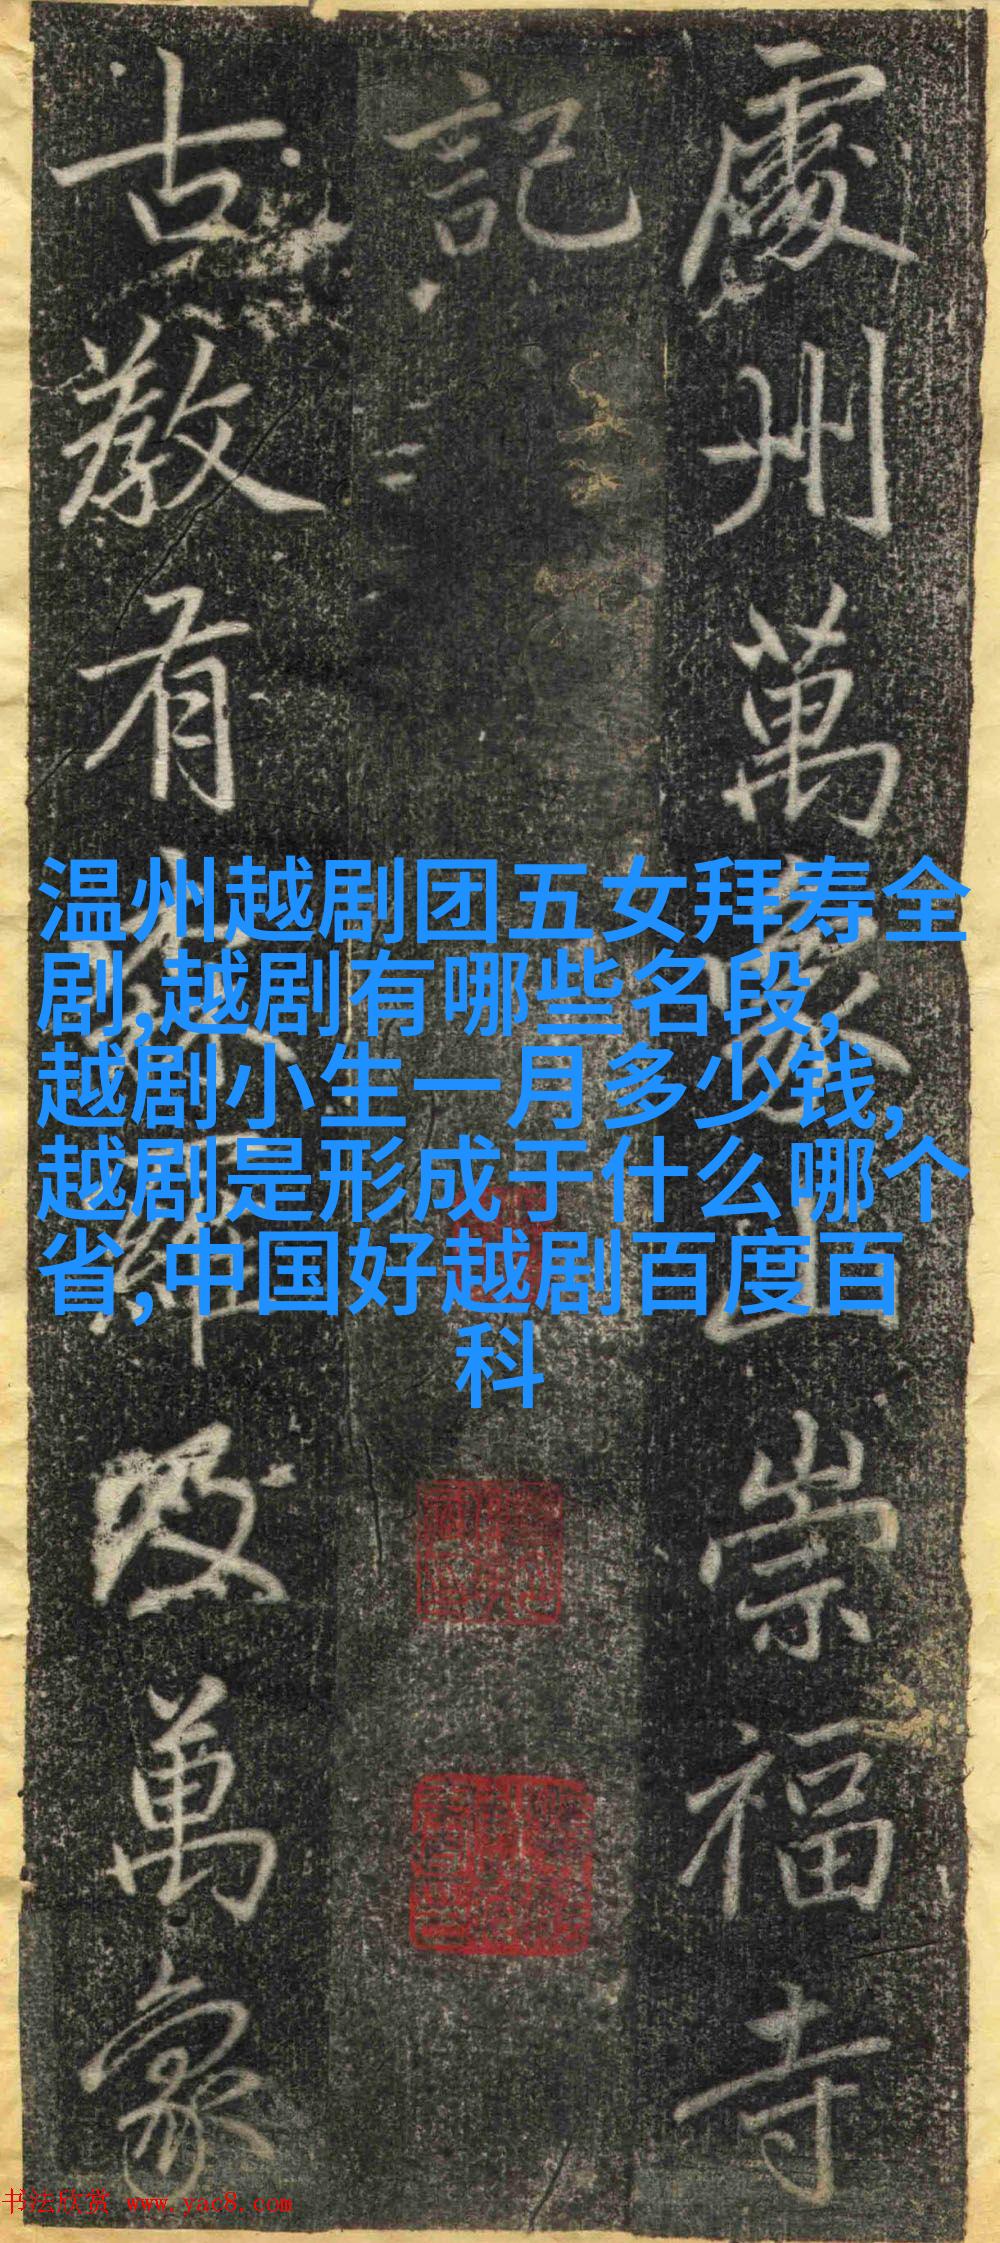 處州萬象山崇福寺
記
古教有森羅及萬象
温州越剧团五女拜寿全
剧,越剧有哪些名段,
越剧小生一月多少钱,
越剧是形成于什么哪个
省,中国好越剧百度百
科
书法欣赏 www.yac8.com